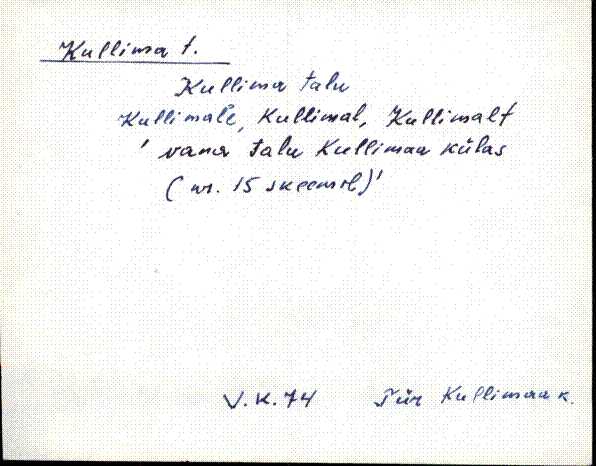 Kullima t.
Kullima talu
Kullimale, Kullimal, Kullimalt
' vana talu Kullimaa külas
(nr. 15 skeemil)'
V.K. 74 Tür Kullimaa k.